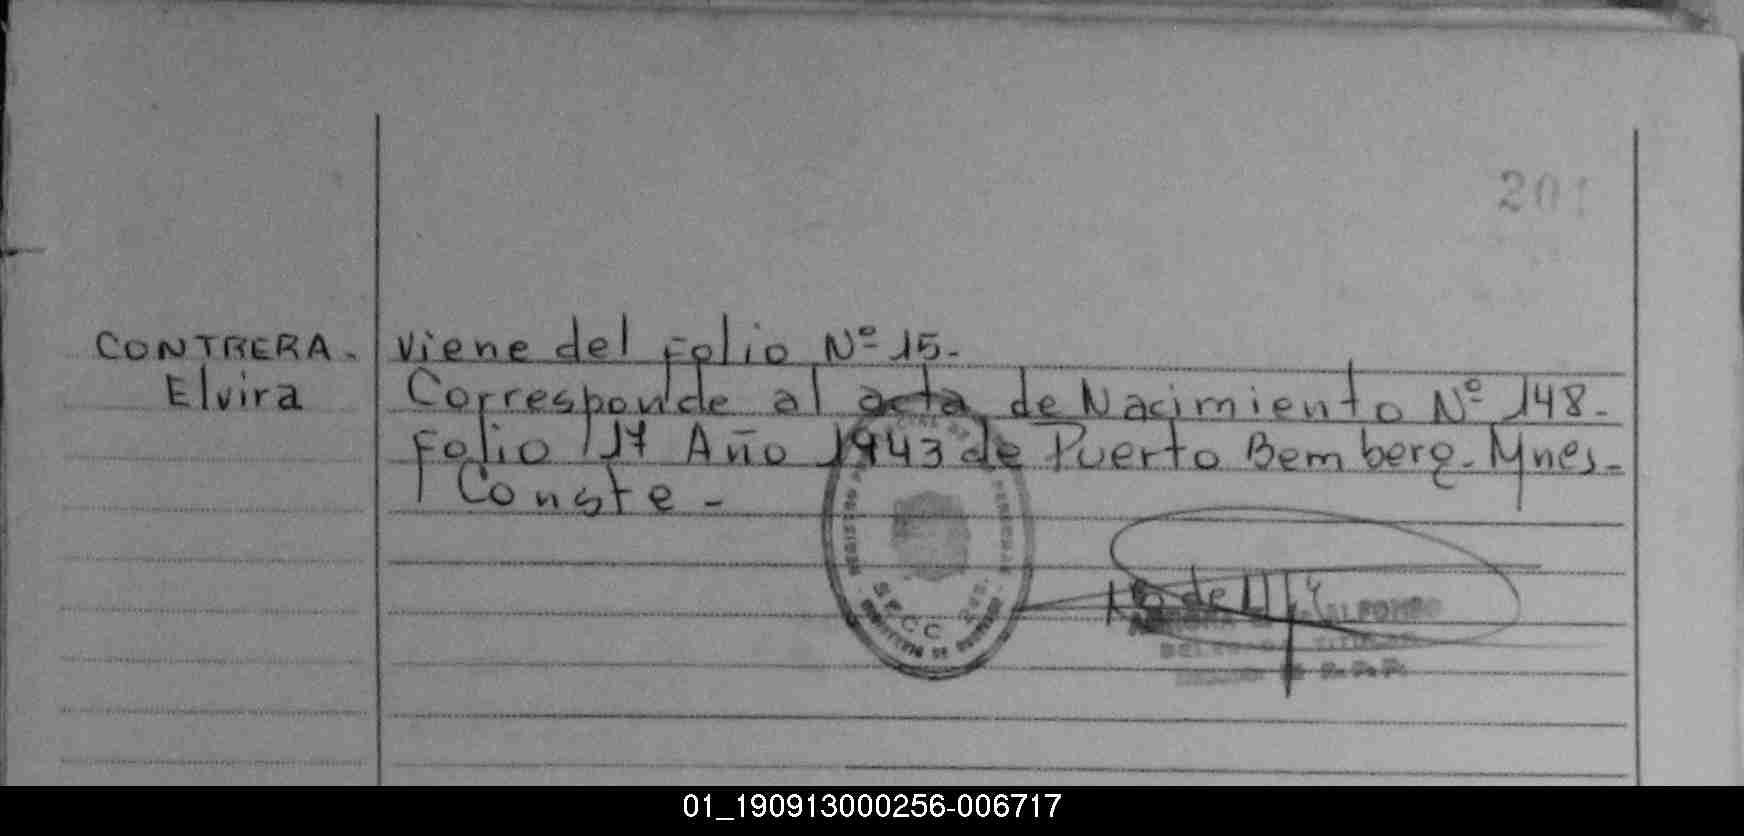 201
CONTRERA. Viene del Folio Nº 15.
Elvira Corresponde al acta de Nacimiento Nº 148.
Folio 117 Año 1943 de Puerto Bemberg. Mnes.
Conste.
REGISTRO
S.P.C.C.
01_190913000256-006717